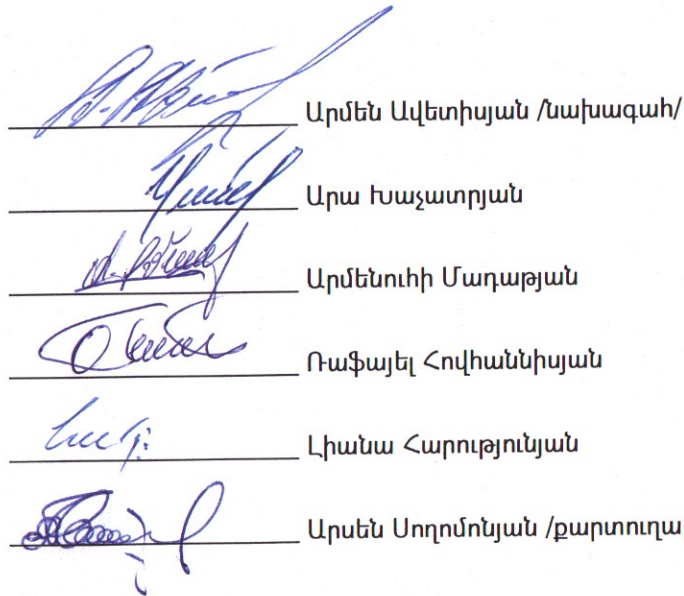 Արմեն Ավետիսյան /նախագահ/
Արա Խաչատրյան
Արմենուհի Մադաթյան
Ռաֆայել Հովհաննիսյան
Լիանա Հարությունյան
Արսեն Սողոմոնյան /քարտուղա